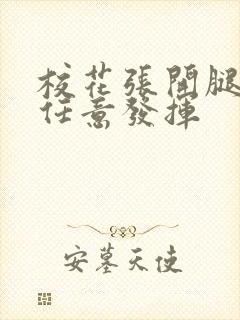 校花張開腿
任意發揮
安墓天使